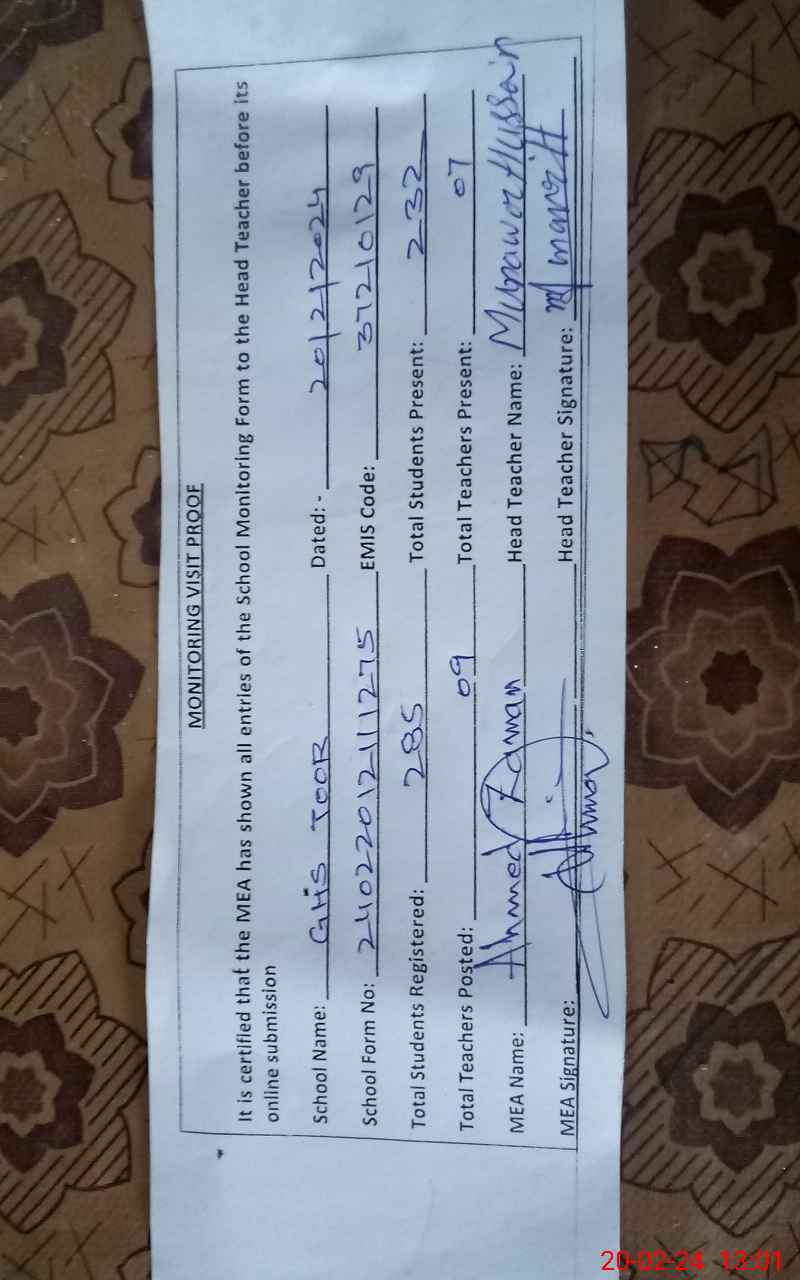 MONITORING VISIT PROOF
It is certified that the MEA has shown all entries of the School Monitoring Form to the Head Teacher before its
online submission
School Name: GHS TOOR Dated: - 20/2/2024
School Form No: 240220121111275 EMIS Code: 37210129
Total Students Registered: 285 Total Students Present: 232
Total Teachers Posted: 09 Total Teachers Present: 07
MEA Name: Ahmed Zaman Head Teacher Name: Munawar Hussain
MEA Signature: Head Teacher Signature:
20-02-24 13:01